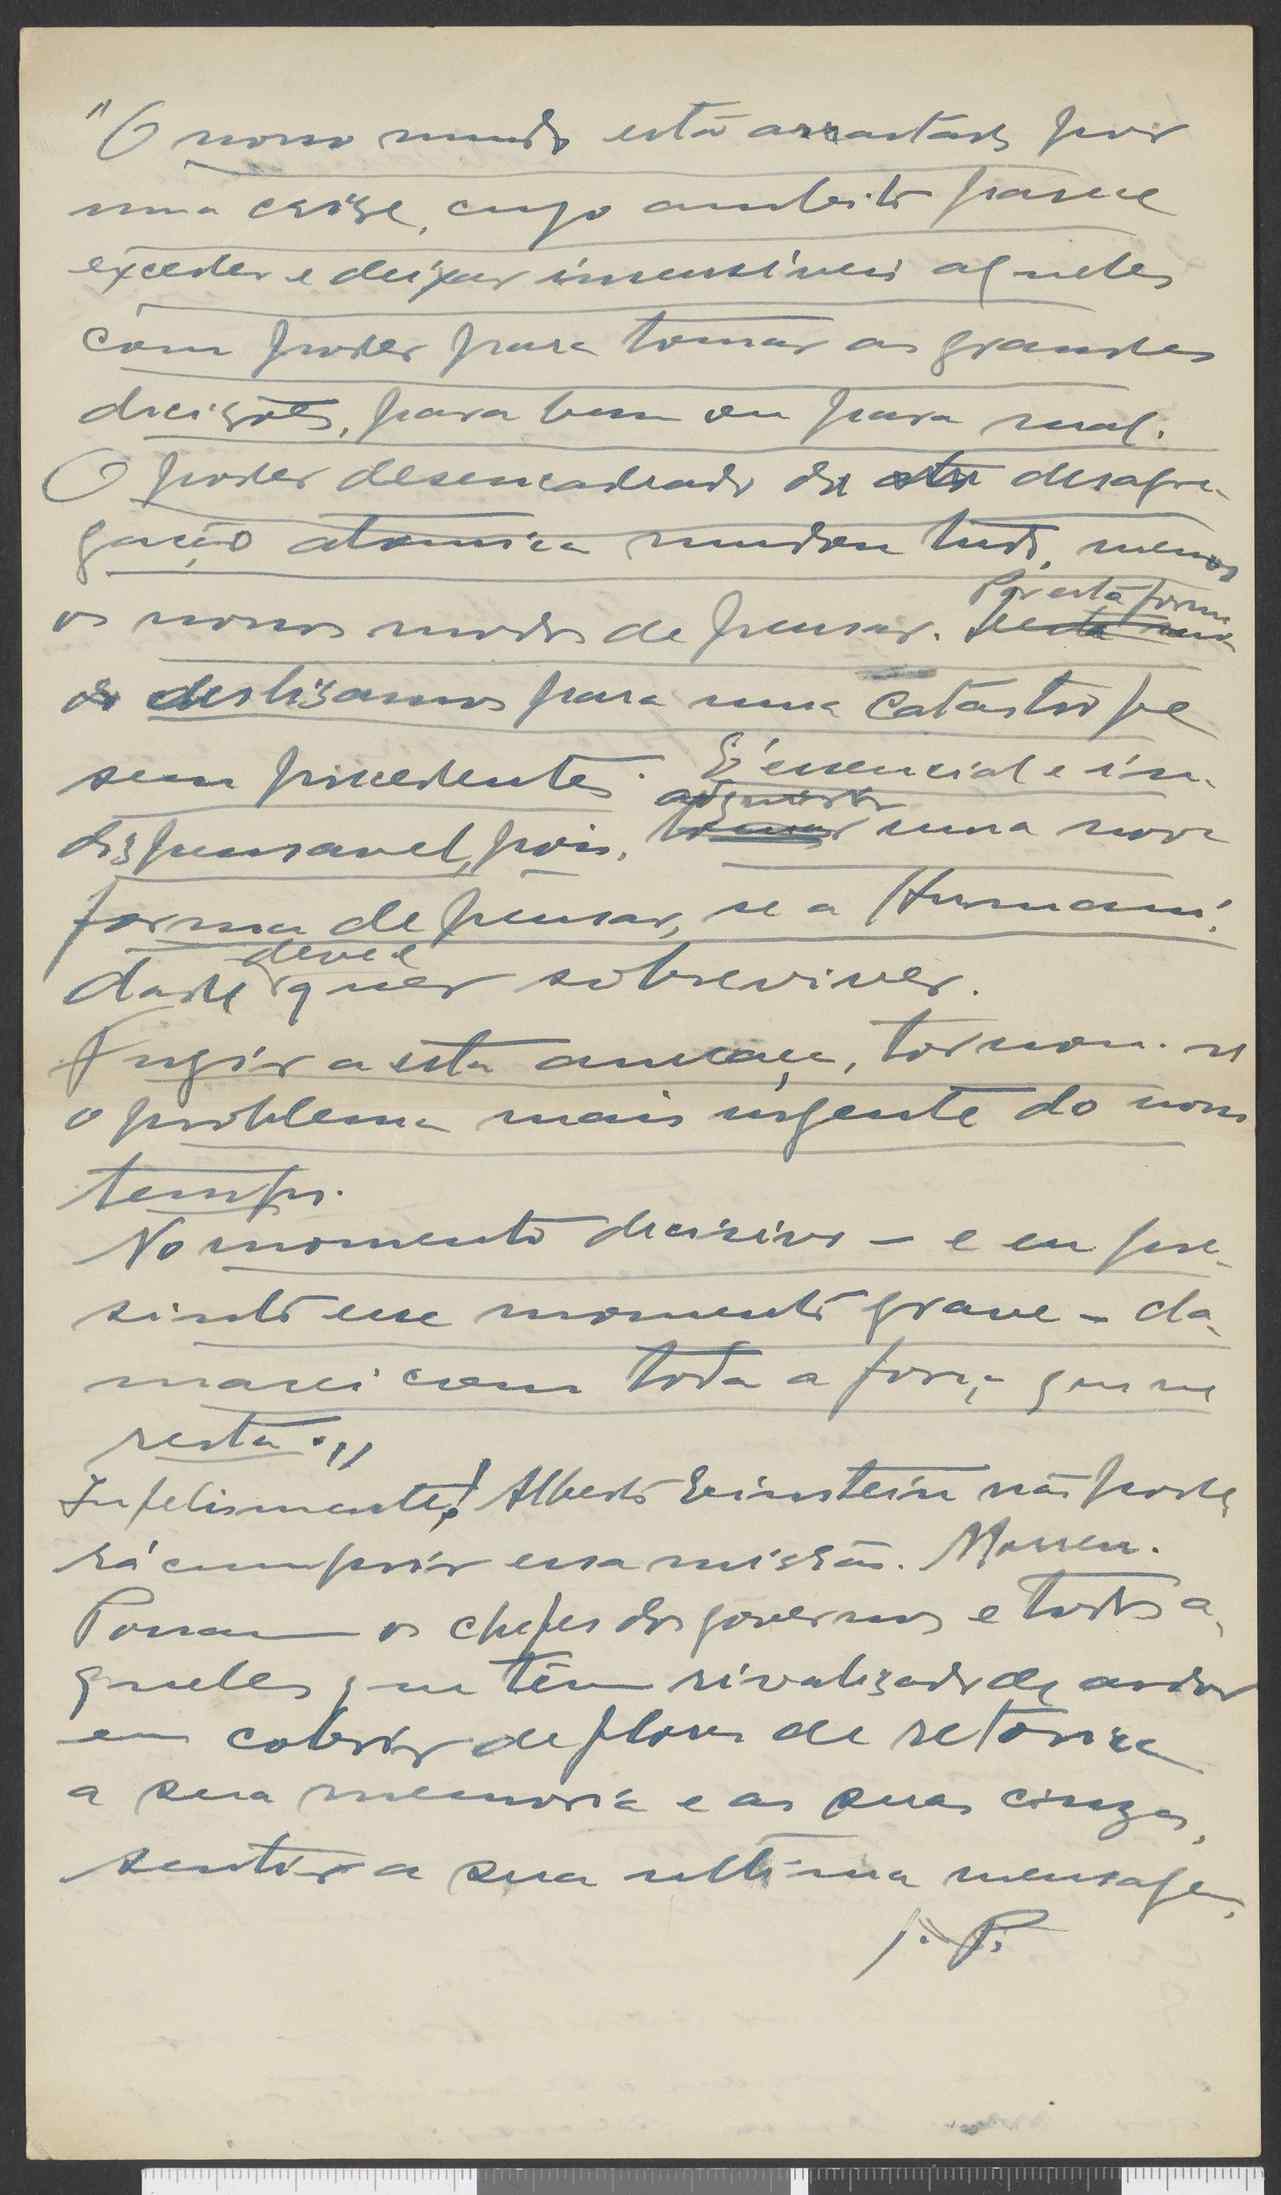 "O nosso mundo está arrastado por
uma crise, cujo ambito parece
exceder e deixar insensiveis aqueles
com poder para tomar as grandes
decisões, para bem ou para mal.
O poder desencadeado da desagre-
gação atomica mudou tudo, menos
os nossos modos de pensar. Por esta forma
deslisamos para uma catastrofe
sem precedentes. É essencial e in-
dispensavel, pois, adquirir uma nova
forma de pensar, se a Humani-
dade deve e quer sobreviver.
Fugir a esta ameaça, tornou-se
o problema mais urgente do nosso
tempo.
No momento decisivo – e eu pre-
sinto esse momento grave – cla-
marei com toda a força que me
resta."
Infelismente! Alberto Einstein não pode-
rá cumprir essa missão. Morreu.
Possam os chefes dos governos e todos a-
queles que têm rivalizado de ardor
em cobrir de flores de retorica
a sua memoria e as suas cinzas,
sentir a sua ultima mensagem.
J. P.